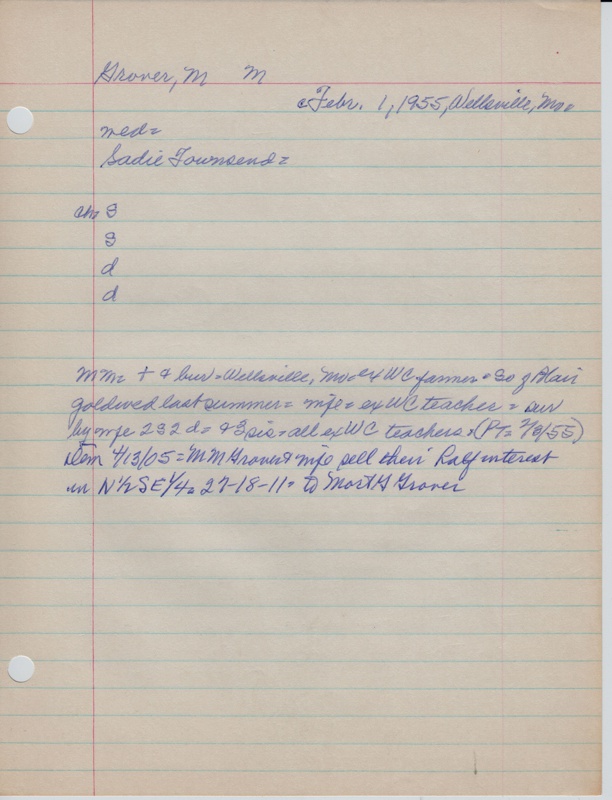 Grover, M M
Febr. 1, 1955, Wellsville, Mo=
med=
Sadie Townsend=
ch= S
S
d
d
MM= + & bur= Wellsville, Mo= ex WC farmer= So of Blair
goldwed last summer= wife= ex WC teacher= sur
by wife 2S2d= & 3 sis= all ex WC teachers= (PT= 2/3/55)
Dem 4/13/05= MM Grover & wife sell their half interest
in N½SE¼= 27-18-11= to Mort G Grover